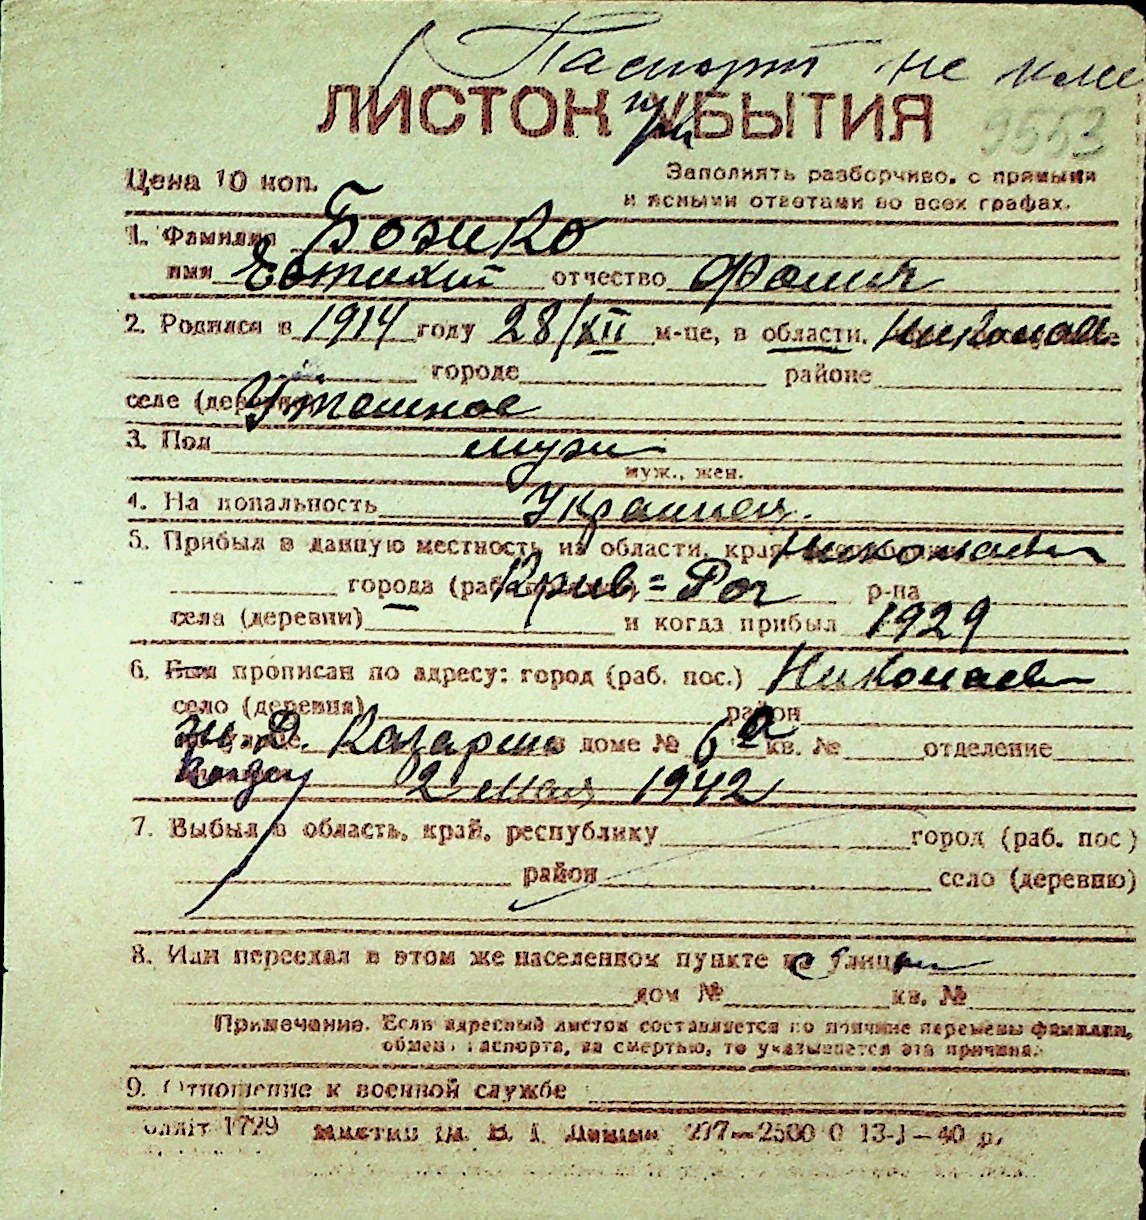 Паспорт не
ЛИСТОК УБЫТИЯ
9553
Цена 10 коп.
Заполнять разборчиво, с прямыми
и ясными ответами во всех графах.
1. Фамилия Божко
имя Евтихий отчество Фомич
2. Родился в 1914 году 28/XII м-це, в области, Николаев
городе районе
селе (деревне)
3. Пол муж
муж., жен.
4. Национальность Украинец.
5. Прибыл в данную местность из области, края, Николаев
города Крив=Рог р-на
села (деревни) и когда прибыл 1929
6. Был прописан по адресу: город (раб. пос.) Николаев
село (деревня) район
в доме № 6а кв. № отделение
2 мая 1942
7. Выбыл в область, край, республику город (раб. пос)
район село (деревню)
8. Или переехал в этом же населенном пункте на улицу
дом № кв. №
Примечание. Если адресный листок составляется по причине перемены фамилии,
обмена паспорта, за смертью, то указывается эта причина.
9. Отношение к военной службе
1729 277—2500 0 13-I—40 р.